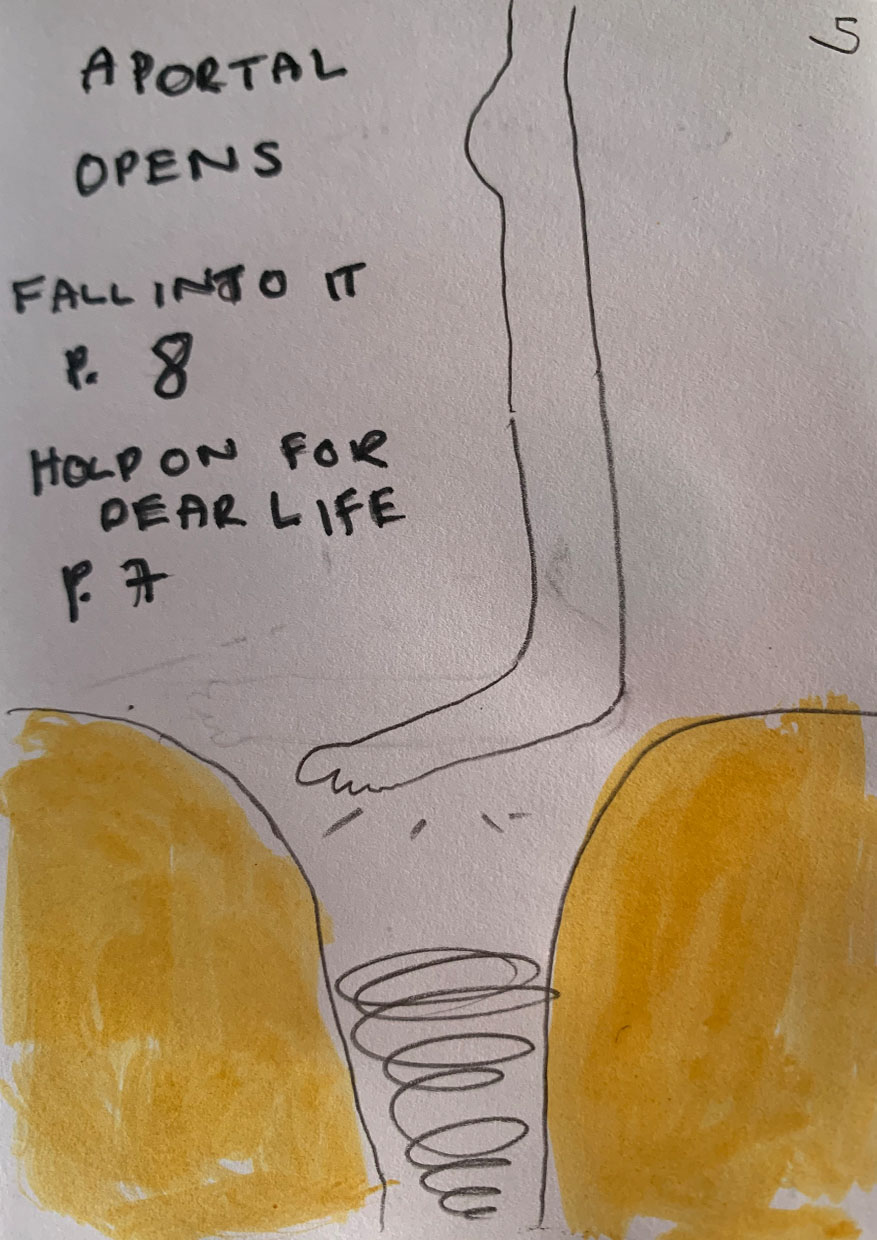 5
A PORTAL
OPENS
FALL INTO IT
P. 8
HOLD ON FOR
DEAR LIFE
P. 7